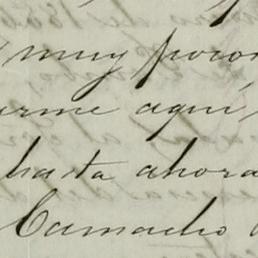 muy pocos
arme aquí
hasta ahora
Camacho